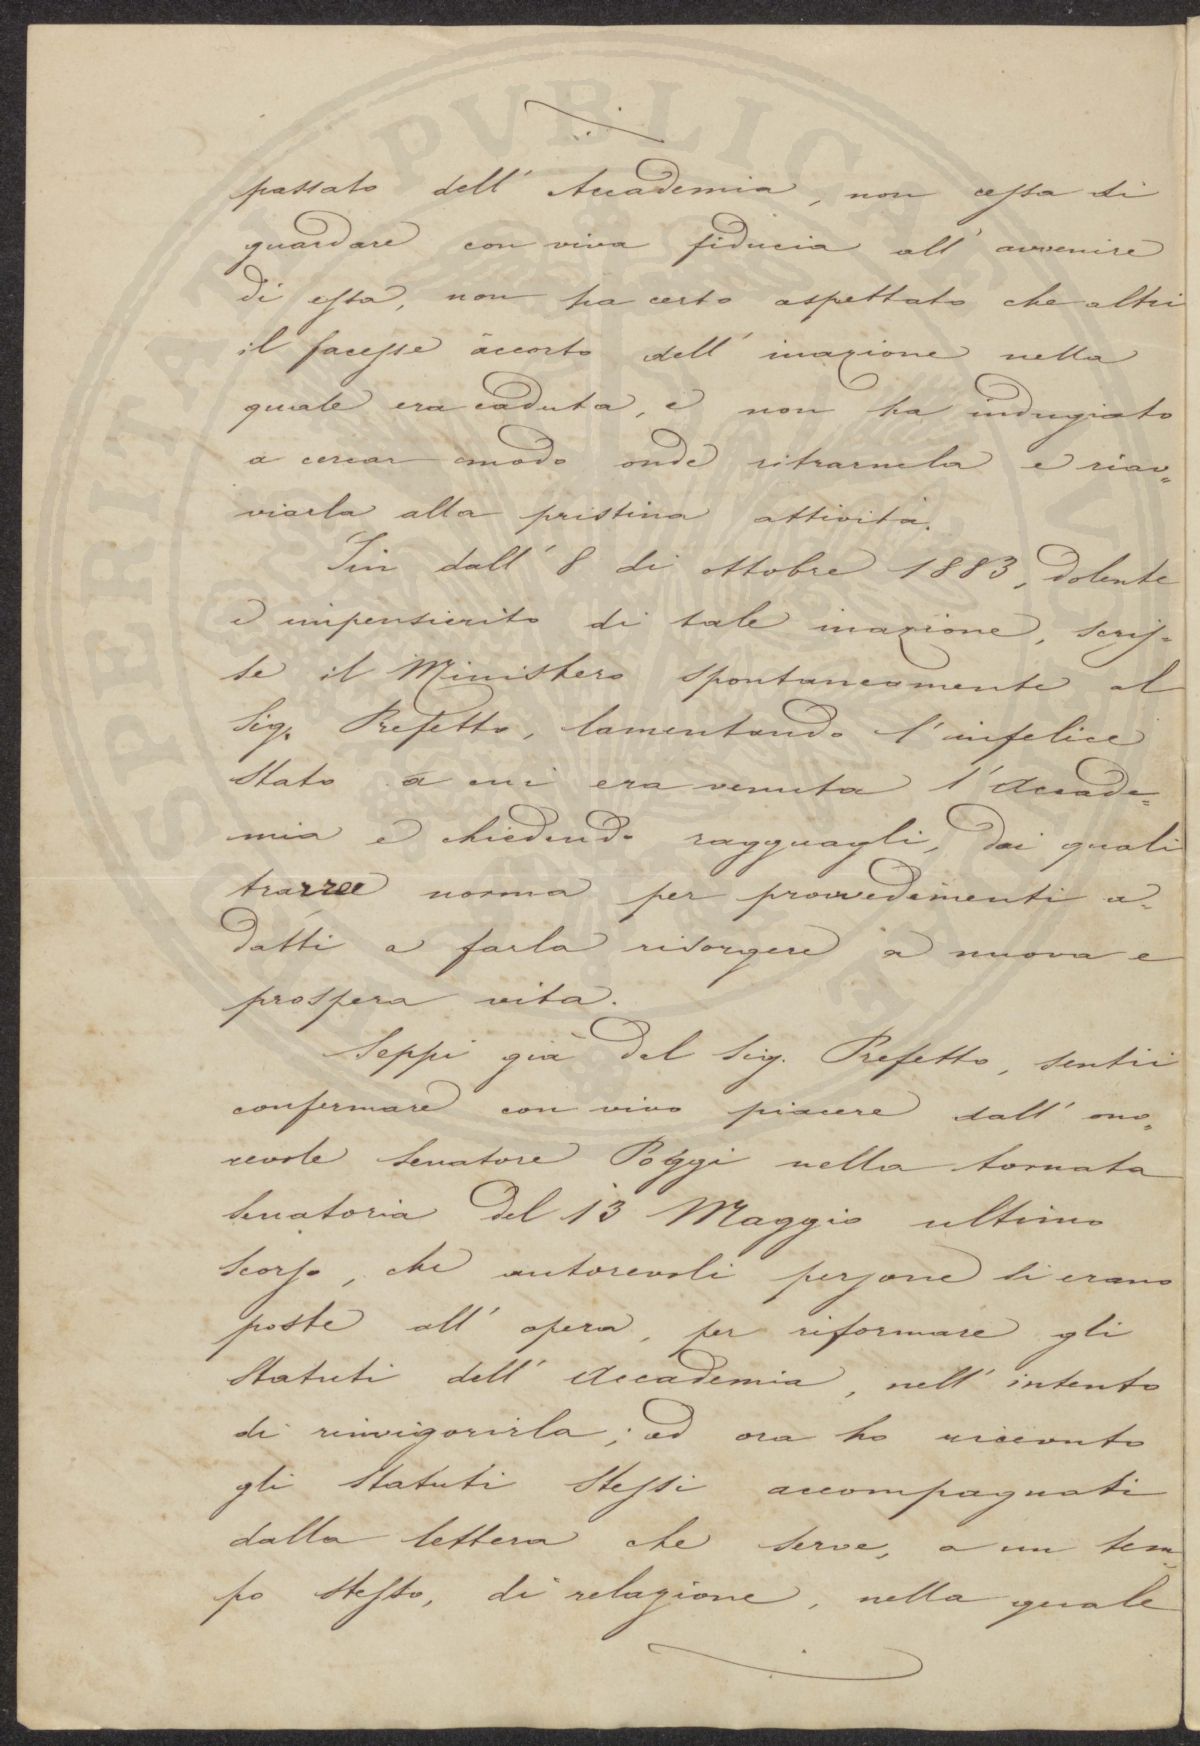 passato dell'Accademia, non cessa di
guardare con viva fiducia all'avvenire
di essa, non ha certo aspettato che altri
il facesse accorto dell'inazione nella
quale era caduta, e non ha indugiato
a cercar modo onde ritrarnela e riav=
viarla alla pristina attività.
Sin dall'8 di ottobre 1883, dolente
e impensierito di tale inazione, scris=
se il Ministero spontaneamente al
Sig. Prefetto, lamentando l'infelice
stato a cui era venuta l'Accade=
mia e chiedendo ragguagli, dai quali
trarre norma per provvedimenti a=
datti a farla risorgere a nuova e
prospera vita.
Seppi già dal Sig. Prefetto, sentii
confermare con vivo piacere dall'ono=
revole Senatore Poggi nella tornata
senatoria del 13 Maggio ultimo
scorso, che autorevoli persone si erano
poste all'opera, per riformare gli
Statuti dell'Accademia, nell'intento
di rinvigorirla; ed ora ho ricevuto
gli Statuti stessi accompagnati
dalla lettera che serve, a un tem=
po stesso, di relazione, nella quale
PROSPERITATI PVBLICAE AVGENDAE